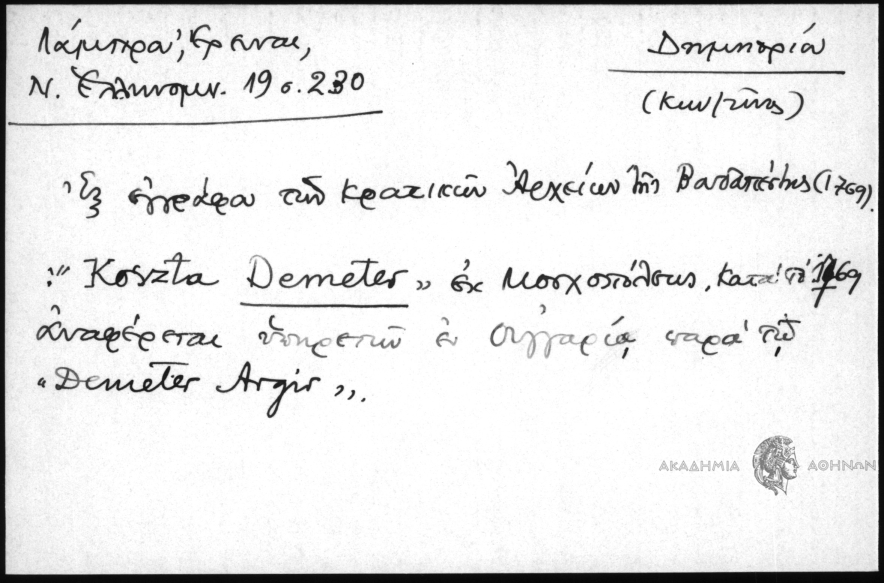 Λάμπρου, Ἔρευναι,
Ν. Ἑλληνομν. 19 σ. 230
Δημητρίου
(Κων/τῖνος)
Ἐξ ἐγγράφου τῶν κρατικῶν Ἀρχείων τῆς Βουδαπέστης (1769).
:" Koszta Demeter „ ἐκ Μοσχοπόλεως, κατὰ τὸ 1769
ἀναφέρεται ὑπηρετῶν ἐν Οὐγγαρίᾳ παρὰ τῷ
"Demeter Argir „.
ΑΚΑΔΗΜΙΑ ΑΘΗΝΩΝ